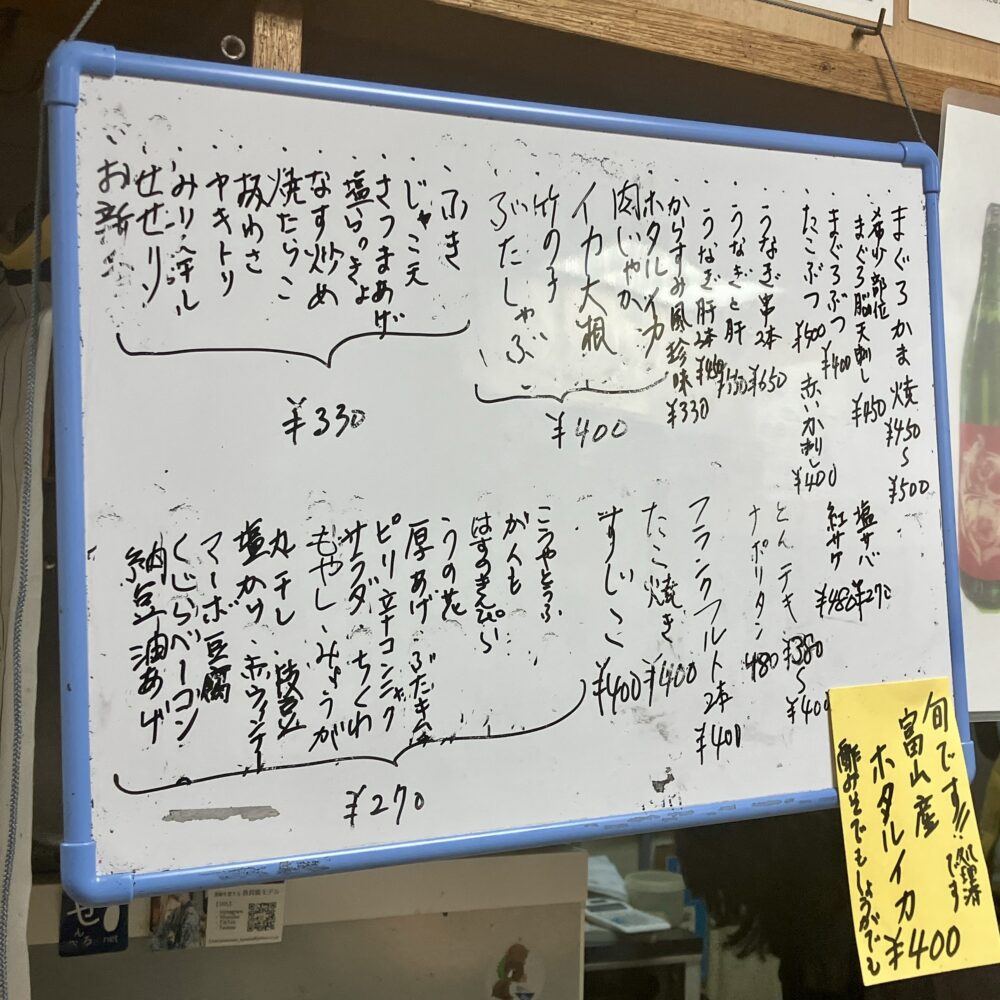 まぐろかま焼 ¥450〜¥500
希少部位
まぐろ脳天刺し ¥450
まぐろぶつ ¥400
たこぶつ ¥500 赤いか刺し ¥400
うなぎ串2本 ¥650
うなぎと肝
うなぎ肝2本
からすみ風珍味 ¥330
ホタルイカ
肉じゃが
イカ大根
竹の子
ぶたしゃぶ
¥400
ふき
じゃこ天
さつまあげ
塩らっきょ
なす炒め
焼たらこ
板わさ
ヤキトリ
みりん干し
せせり
お新
¥330
塩サバ ¥270
紅サケ ¥480
とんテキ ¥380〜¥400
ナポリタン 480
フランクフルト2本 ¥400
たこ焼き ¥400
すじこ ¥400
こうやとうふ
がんも
はすのきんぴら
うの花
厚あげ・ぶたキムチ
ピリ辛コンニャク
サラダ・ちくわ
もやし・みょうが
丸干し・枝豆
塩かけ・赤ウィンナー
マーボ豆腐
くじらベーコン
納豆油あげ
¥270
旬です!! 処理済です
富山産
ホタルイカ ¥400
酢みそでもしょうがでも